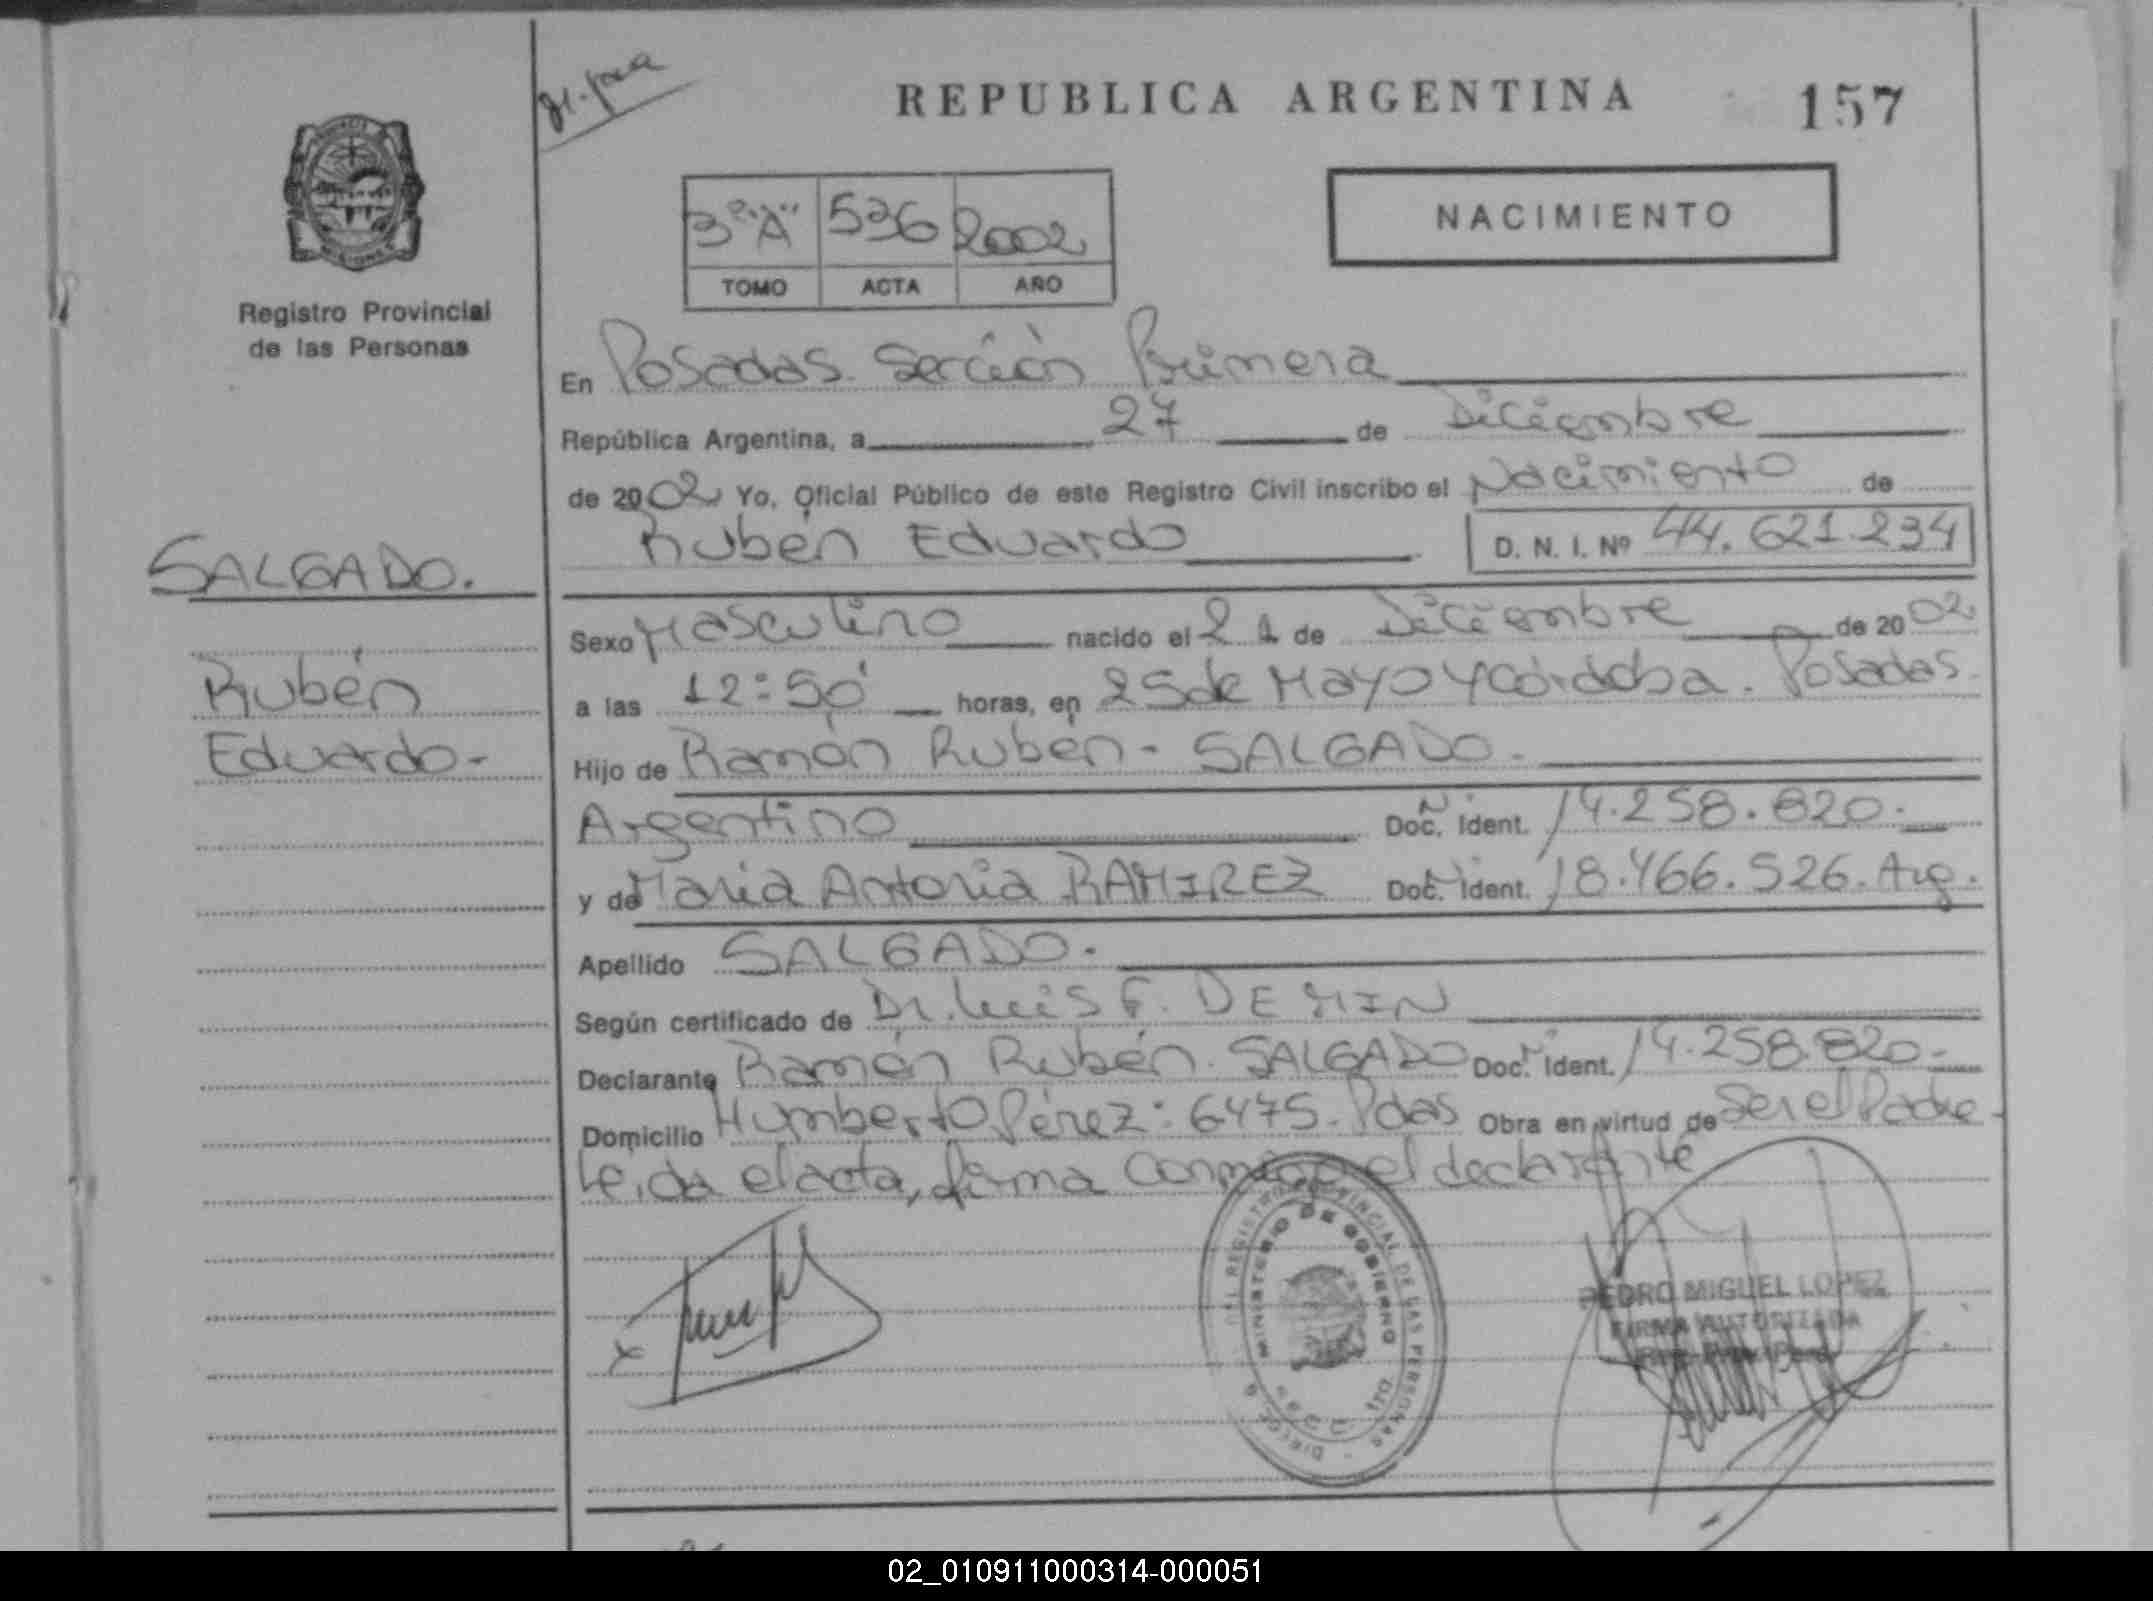 REPUBLICA ARGENTINA
157
3º "A" 536 2002
TOMO ACTA AÑO
NACIMIENTO
Registro Provincial
de las Personas
En Posadas. Sección Primera
República Argentina, a 27 de Diciembre
de 2002 Yo, Oficial Público de este Registro Civil inscribo el Nacimiento de
Rubén Eduardo D. N. I. Nº 44.621.234
SALGADO.
Rubén
Eduardo-
Sexo Masculino nacido el 21 de Diciembre de 2002
a las 12:50 horas, en 25 de Mayo y Córdoba. Posadas.
Hijo de Ramón Rubén - SALGADO.
Argentino Doc. Ident. 14.258.820.
y de María Antonia RAMIREZ Doc. Ident. 18.466.526. Arg.
Apellido SALGADO.
Según certificado de Dr. Luis F. DE MIN
Declarante Ramón Rubén. SALGADO Doc. Ident. 14.258.820.-
Domicilio Humberto Pérez: 6475. Pdas Obra en virtud de Ser el Padre.
Leida el acta, firma conmigo el declarante
MINISTERIO DE GOBIERNO
REGISTRO PROVINCIAL DE LAS PERSONAS
PEDRO MIGUEL LOPEZ
FIRMA AUTORIZADA
02_010911000314-000051